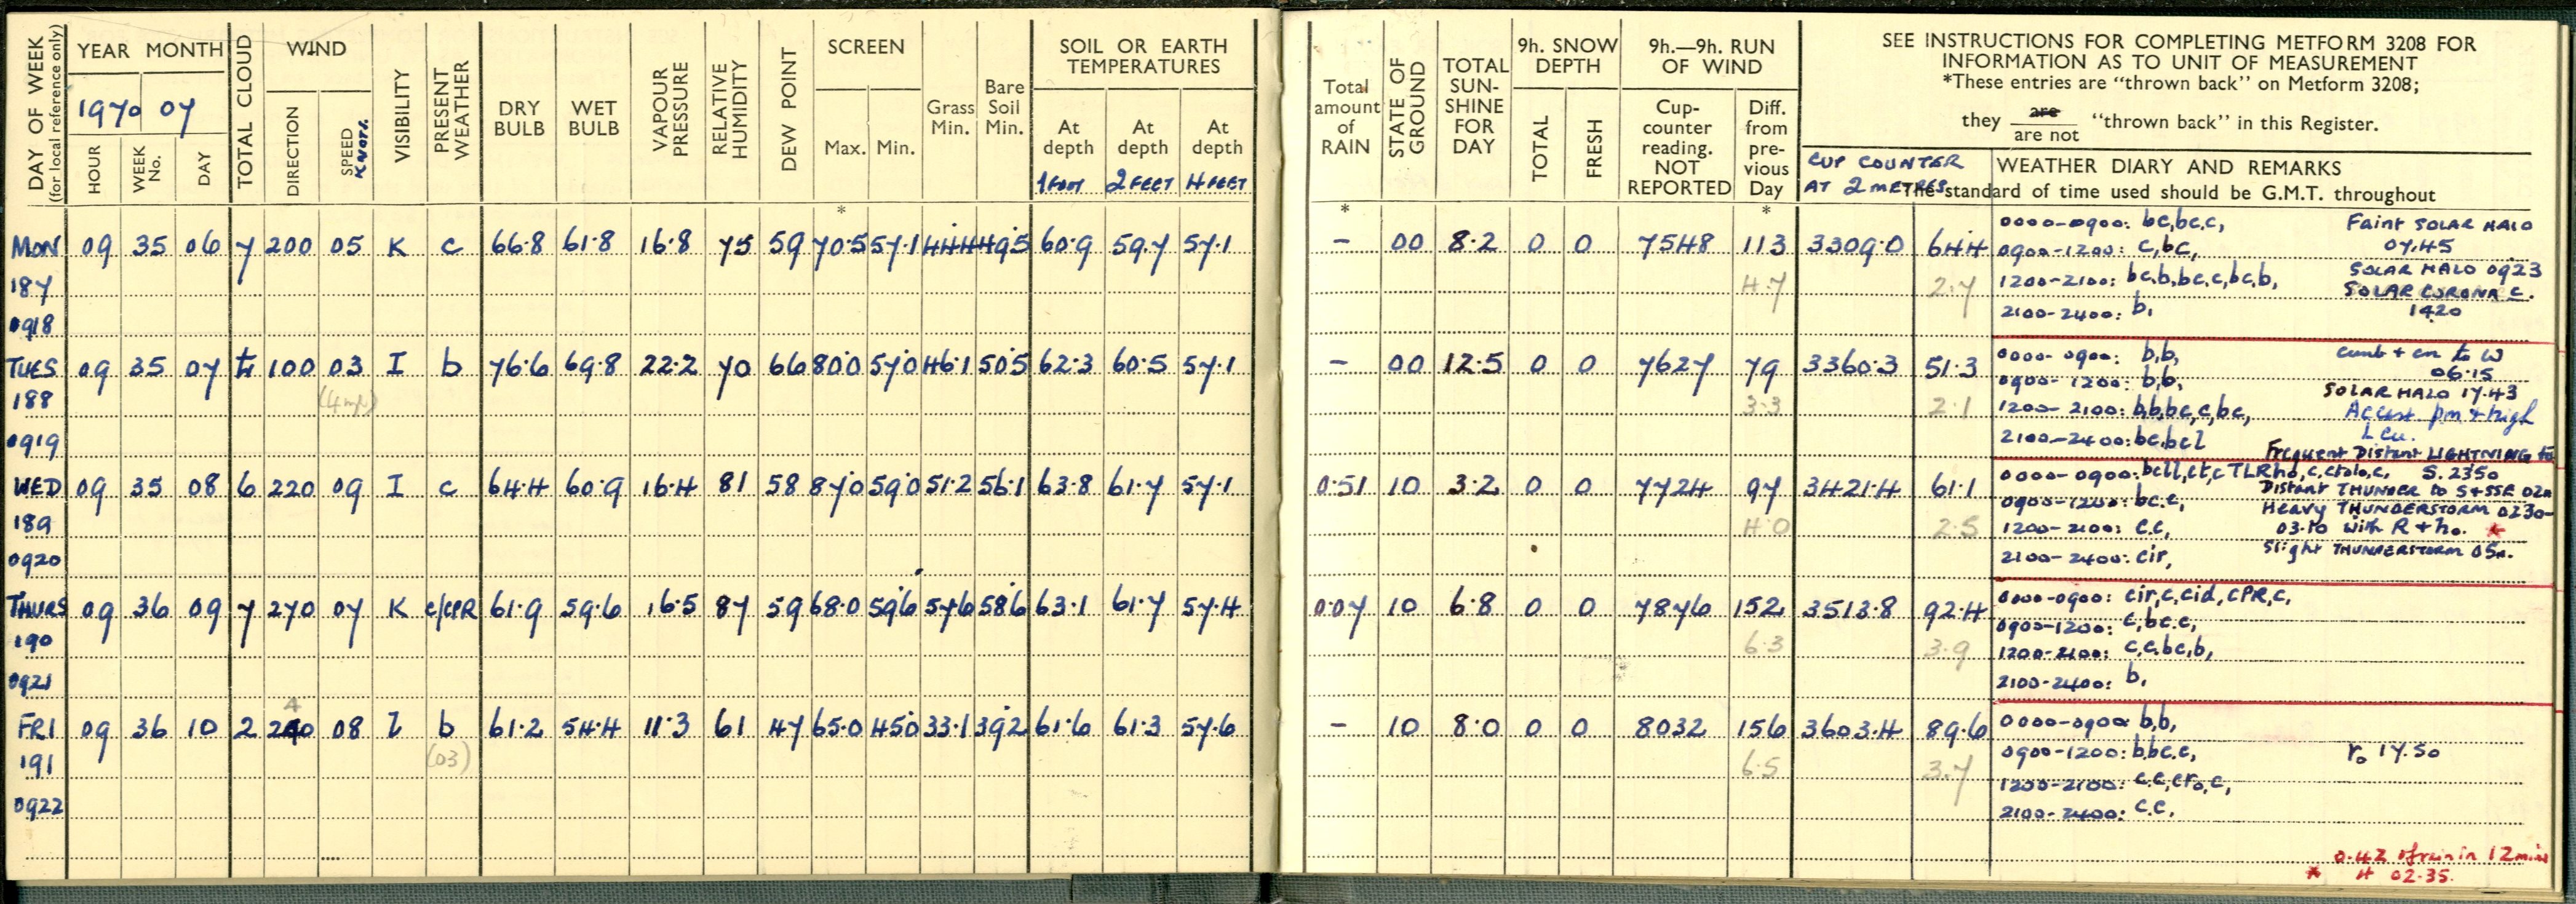 DAY OF WEEK
(for local reference only)
YEAR MONTH
1970 07
HOUR
WEEK No.
DAY
TOTAL CLOUD
WIND
DIRECTION
SPEED
KNOTS.
VISIBILITY
PRESENT WEATHER
DRY BULB
WET BULB
VAPOUR PRESSURE
RELATIVE HUMIDITY
DEW POINT
SCREEN
Max.
Min.
Grass Min.
Bare Soil Min.
SOIL OR EARTH TEMPERATURES
At depth At depth At depth
1 FOOT 2 FEET 4 FEET
Total amount of RAIN
STATE OF GROUND
TOTAL SUN-SHINE FOR DAY
9h. SNOW DEPTH
TOTAL
FRESH
9h.—9h. RUN OF WIND
Cup-counter reading. NOT REPORTED
Diff. from pre-vious Day
SEE INSTRUCTIONS FOR COMPLETING METFORM 3208 FOR
INFORMATION AS TO UNIT OF MEASUREMENT
*These entries are "thrown back" on Metform 3208;
they are
are not "thrown back" in this Register.
CUP COUNTER
AT 2 METRES
WEATHER DIARY AND REMARKS
The standard of time used should be G.M.T. throughout
* * *
MON 09 35 06 7 200 05 K c 66.8 61.8 16.8 75 59 70.5 57.1 44.4 49.5 60.9 59.7 57.1 – 00 8.2 0 0 7548 113 3309.0 64.4
187
0918
4.7 2.7
0000-0900: bc,bc.c,
Faint SOLAR HALO
07.45
0900-1200: c,bc,
SOLAR HALO 0923
1200-2100: bc,b,bc,c,bc,b,
SOLAR CORONA c.
1420
2100-2400: b,
TUES 09 35 07 100 03 I b 76.6 69.8 22.2 70 66 80.0 57.0 46.1 50.5 62.3 60.5 57.1 – 00 12.5 0 0 7627 79 3360.3 51.3
188
0919
3.3 2.1
0000-0900: b,b,
cumb + cn to W
06.15
0900-1200: b,b,
SOLAR HALO 17.43
1200-2100: b,b,bc,c,bc,
Accast pm + high
Lcu.
2100-2400: bc,bcl
Frequent Distant LIGHTNING to
S. 2350
WED 09 35 08 6 220 09 I c 64.4 60.9 16.4 81 58 87.0 59.0 51.2 56.1 63.8 61.7 57.1 0.51 10 3.2 0 0 7724 97 3421.4 61.1
189
0920
4.0 2.5
0000-0900: bcll,ctc TLRho,c,
Distant THUNDER to S+SSE
0900-1200: bc.c,
Heavy THUNDERSTORM 0230-
03.10 with R + ho. *
1200-2100: c.c,
Slight THUNDERSTORM
2100-2400: cir,
THURS 09 36 09 7 270 07 K c/cPR 61.9 59.6 16.5 87 59 68.0 59.6 57.6 58.6 63.1 61.7 57.4 0.07 10 6.8 0 0 7876 152 3513.8 92.4
190
0921
6.3 3.9
0000-0900: cir,c,cid,cPR,c,
0900-1200: c,bc.c,
1200-2100: c,c,bc,b,
2100-2400: b,
4
FRI 09 36 10 2 240 08 b 61.2 54.4 11.3 61 47 65.0 45.0 33.1 39.2 61.6 61.3 57.6 – 10 8.0 0 0 8032 156 3603.4 89.6
191
(03)
0922
6.5 3.7
0000-0900: b,b,
0900-1200: b.bc.c,
ro 17.50
1200-2100: c.c,cro,c,
2100-2400: c.c,
0.42 of rain in 12 mins
* 02.35.